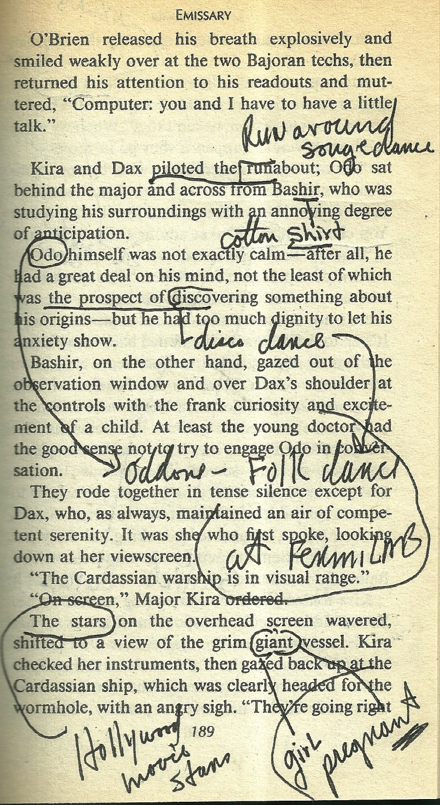 EMISSARY
O'Brien released his breath explosively and
smiled weakly over at the two Bajoran techs, then
returned his attention to his readouts and mut-
tered, "Computer: you and I have to have a little
talk."
Run around
song & dance
Kira and Dax piloted the runabout; Odo sat
behind the major and across from Bashir, who was
studying his surroundings with an annoying degree
of anticipation.
cotton shirt
Odo himself was not exactly calm—after all, he
had a great deal on his mind, not the least of which
was the prospect of discovering something about
his origins—but he had too much dignity to let his
anxiety show.
disco dance
Bashir, on the other hand, gazed out of the
observation window and over Dax's shoulder at
the controls with the frank curiosity and excite-
ment of a child. At least the young doctor had
the good sense not to try to engage Odo in conver-
sation.
oddone - Folk dance
They rode together in tense silence except for
Dax, who, as always, maintained an air of compe-
tent serenity. It was she who first spoke, looking
down at her viewscreen.
at FermiLAB
"The Cardassian warship is in visual range."
"On screen," Major Kira ordered.
The stars on the overhead screen wavered,
shifted to a view of the grim giant vessel. Kira
checked her instruments, then gazed back up at the
Cardassian ship, which was clearly headed for the
wormhole, with an angry sigh. "They're going right
189
Hollywood
movie
stars
girl
pregnant